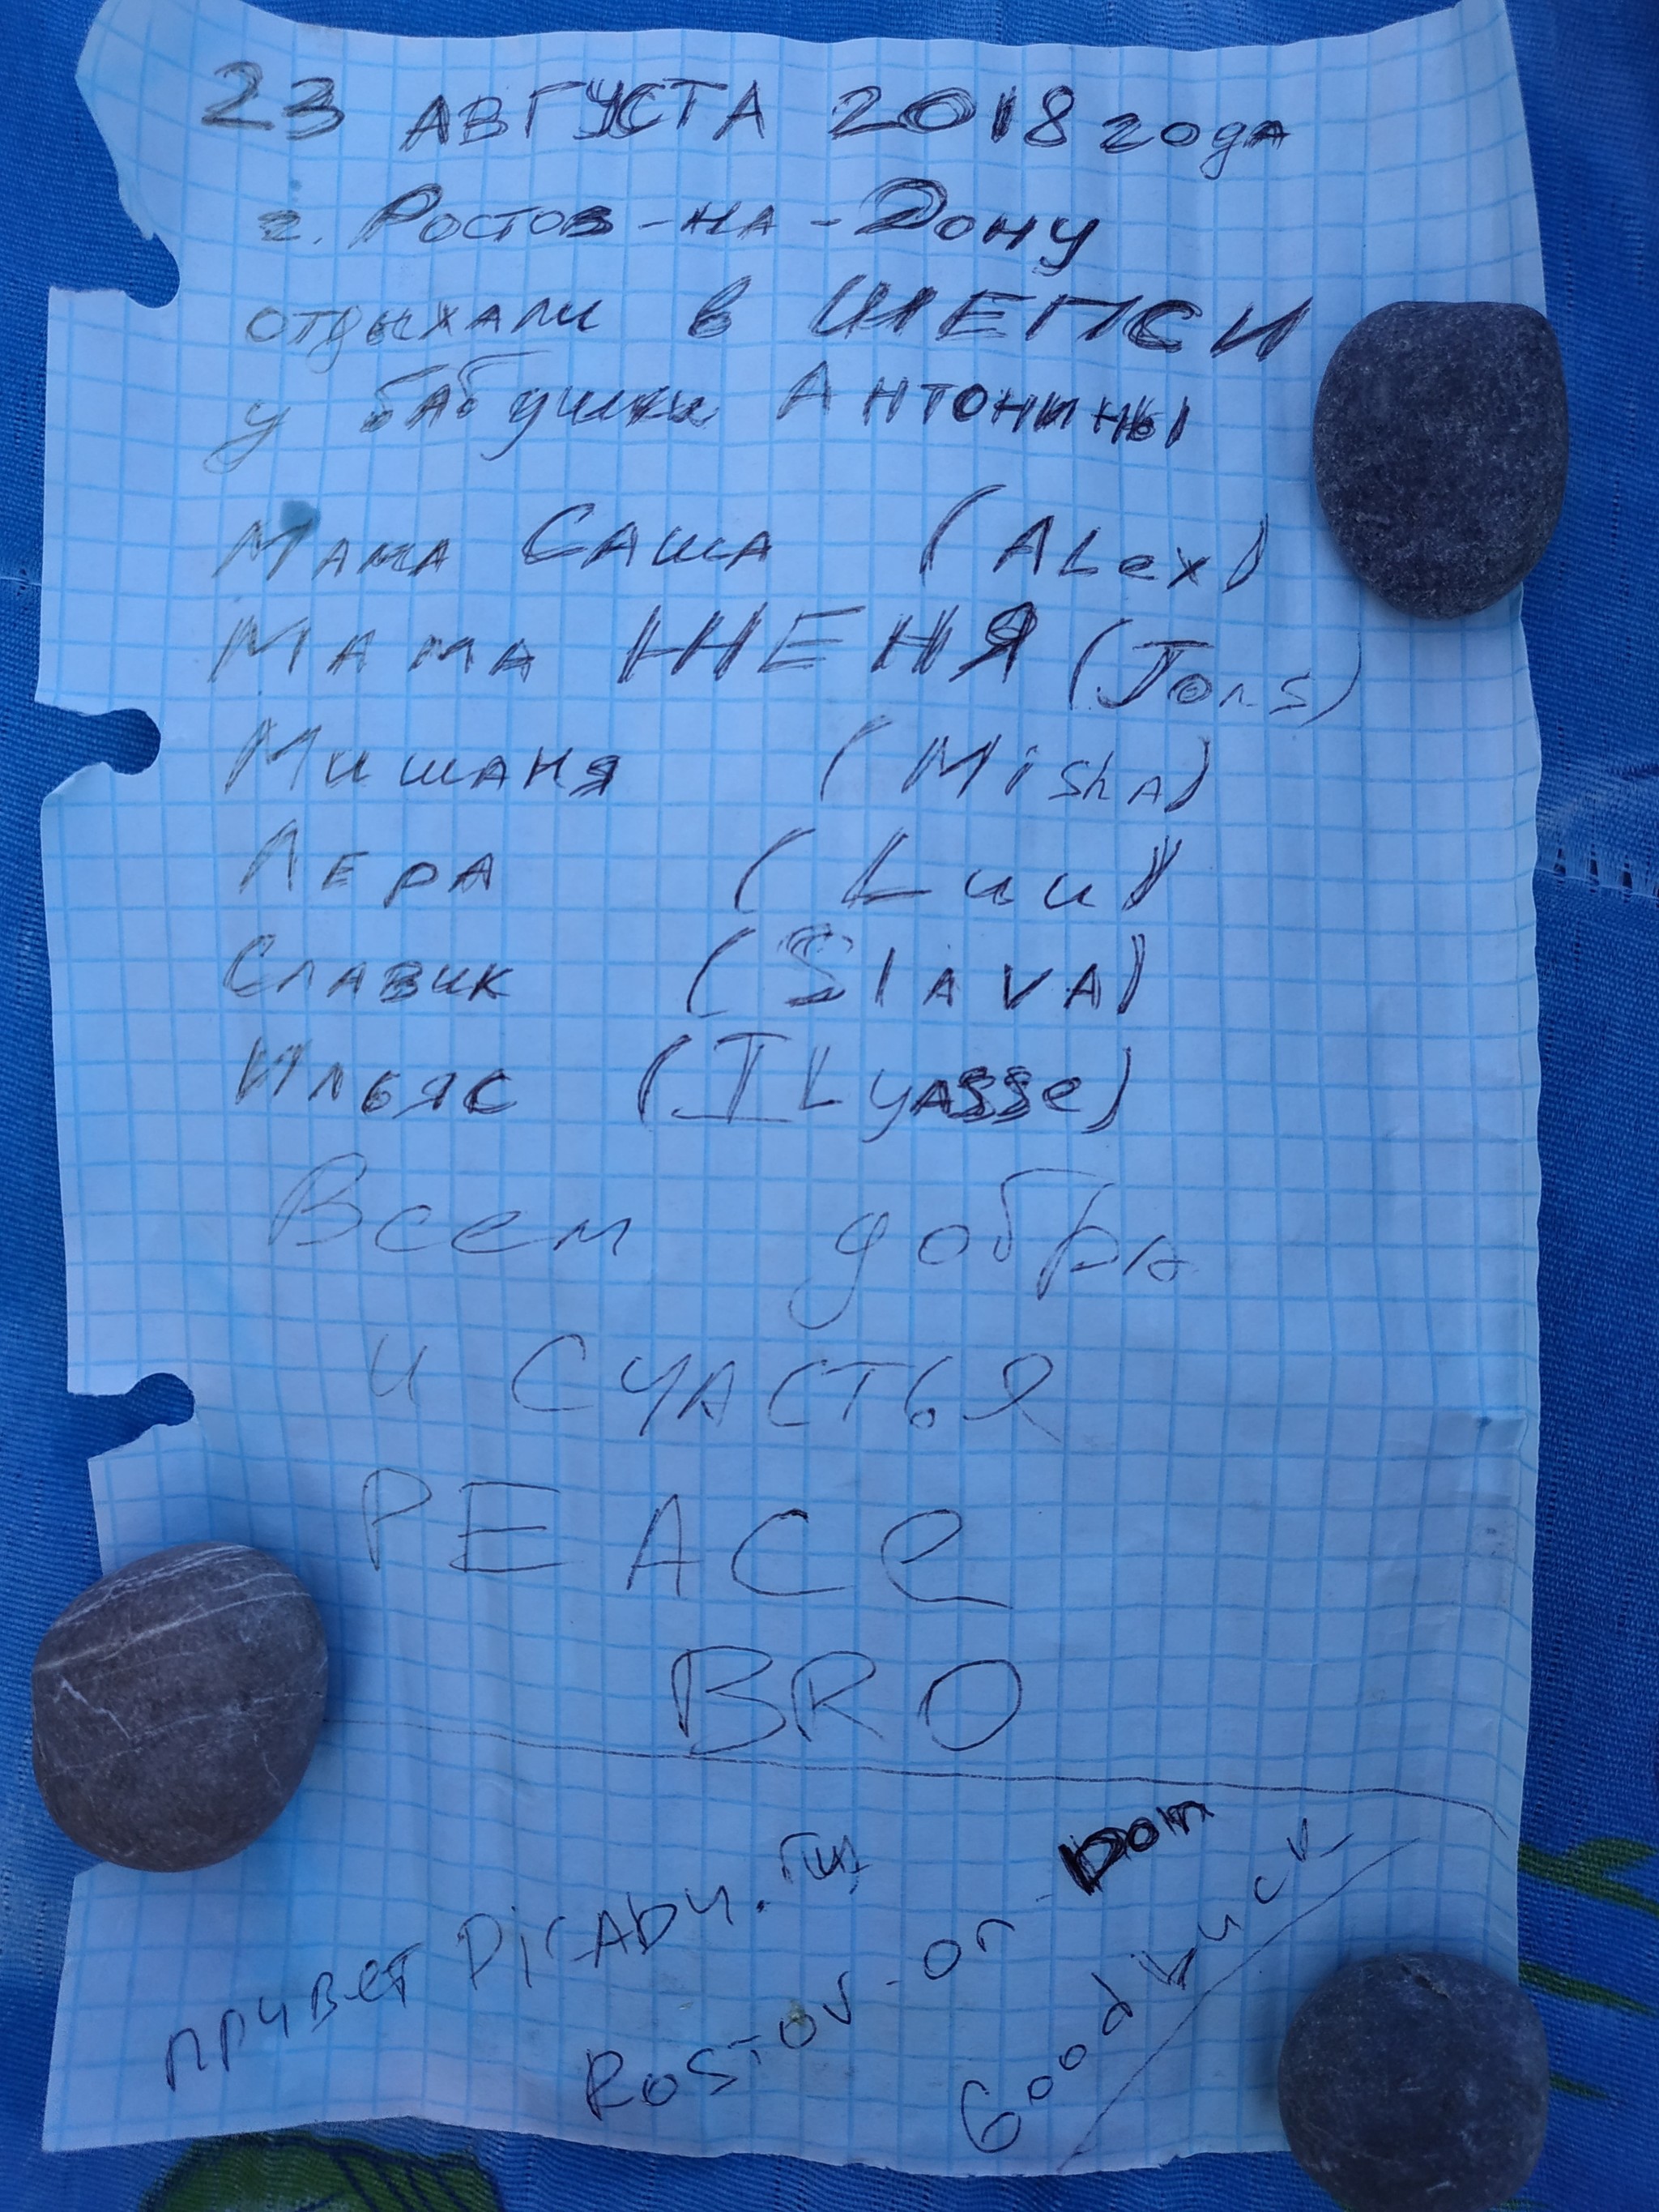 23 АВГУСТА 2018 года
г. Ростов-на-Дону
отдыхали в ШЕПСИ
у бабушки Антонины
Мама Саша (ALex)
Мама ЖЕНЯ (Jons)
Мишаня (Misha)
Лера (Luu)
Славик (Slava)
Ильяс (ILyasse)
Всем добра
и счастья
PEACe
BRO
привет Picabu.
Rostov-on-Don
Good Luck